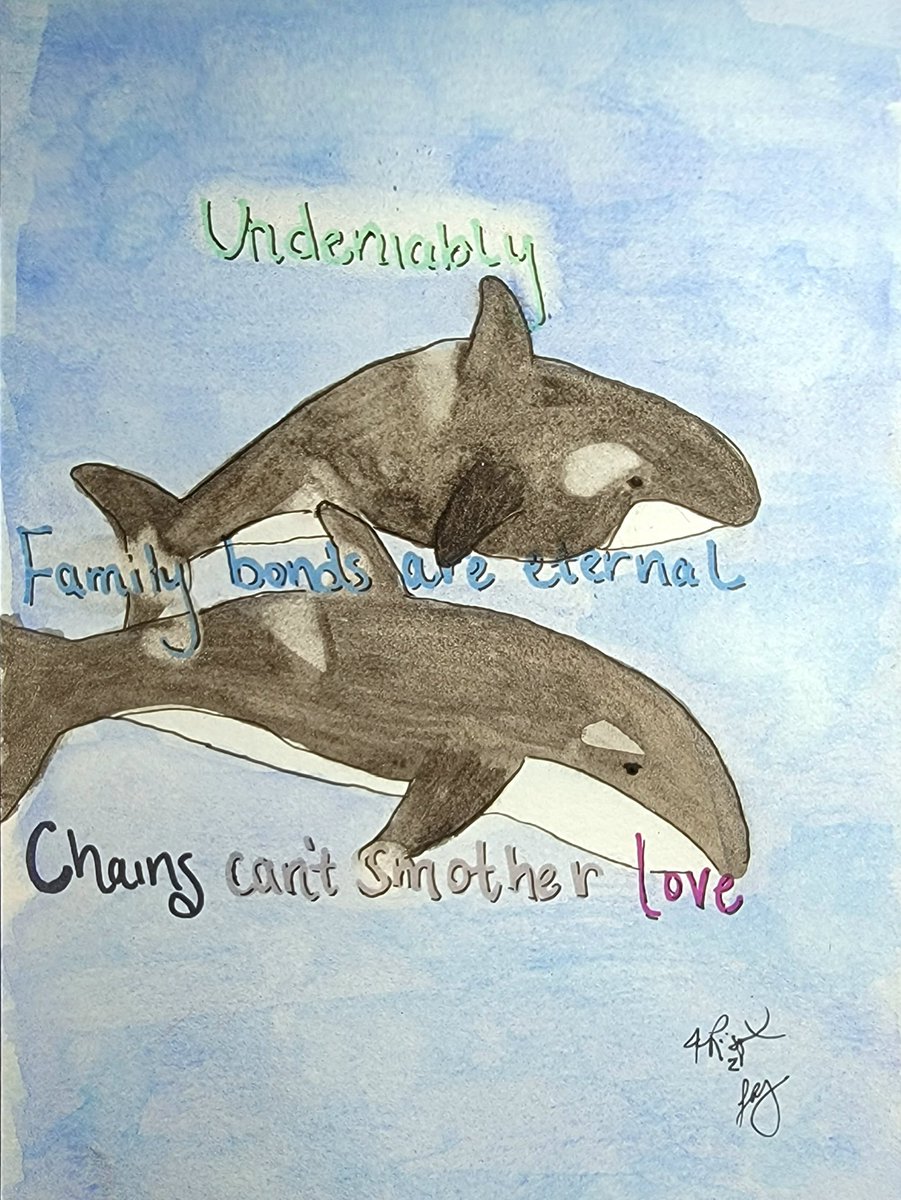 Undeniably
Family bonds are eternal
Chains can't smother love